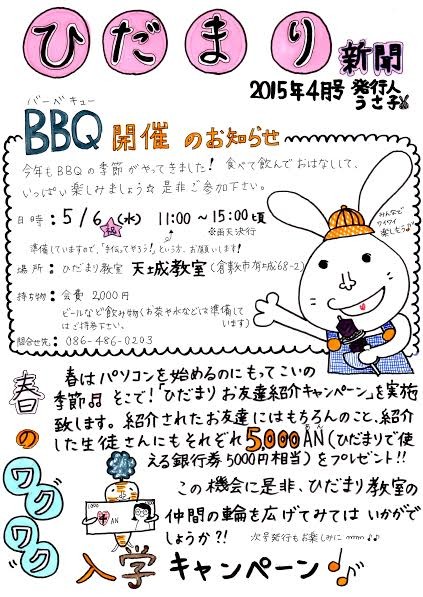 ひだまり新聞
2015年4月号 発行人
うさ子
バーベキュー
BBQ 開催 のお知らせ
今年もBBQの季節がやってきました! 食べて飲んでおはなしして、
いっぱい楽しみましょう☆ 是非ご参加下さい。
日時:5/6(水) 11:00〜15:00頃
祝 ※雨天決行
準備していますので、「手伝ってやろう!」という方、お願いします!
場所:ひだまり教室 天城教室(倉敷市有城68-2)
持ち物:会費 2,000円
ビールなど飲み物(お茶や水などは準備して
はご持参下さい。 います)
問合せ先:086-486-0203
みんなで
ワイワイ
楽しもう♪
春はパソコンを始めるのにもってこいの
季節♬ そこで!「ひだまり お友達紹介キャンペーン」を実施
致します。紹介されたお友達にはもちろんのこと、紹介
した生徒さんにもそれぞれ5,000AN(ひだまりで使
える銀行券5000円相当)をプレゼント!!
この機会に是非、ひだまり教室の
仲間の輪を広げてみては いかがで
しょうか?! 次号発行もお楽しみに mmm♪♪
春のワクワク
1,000
AN
入学キャンペーン♪